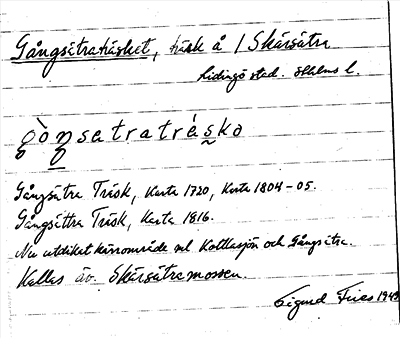 Gångsätraträsket, träsk å / Skärsätra
Lidingö stad. Sthlms l.
gòŋsetratrésko
Gångsätra Träsk, Karta 1720, Karta 1804-05.
Gångsättra Träsk, Karta 1816.
Nu utdikat kärrområde ml Kottlasjön och Gångsätra.
Kallas äv. Skärsätramossen.
Sigurd Fries 1949